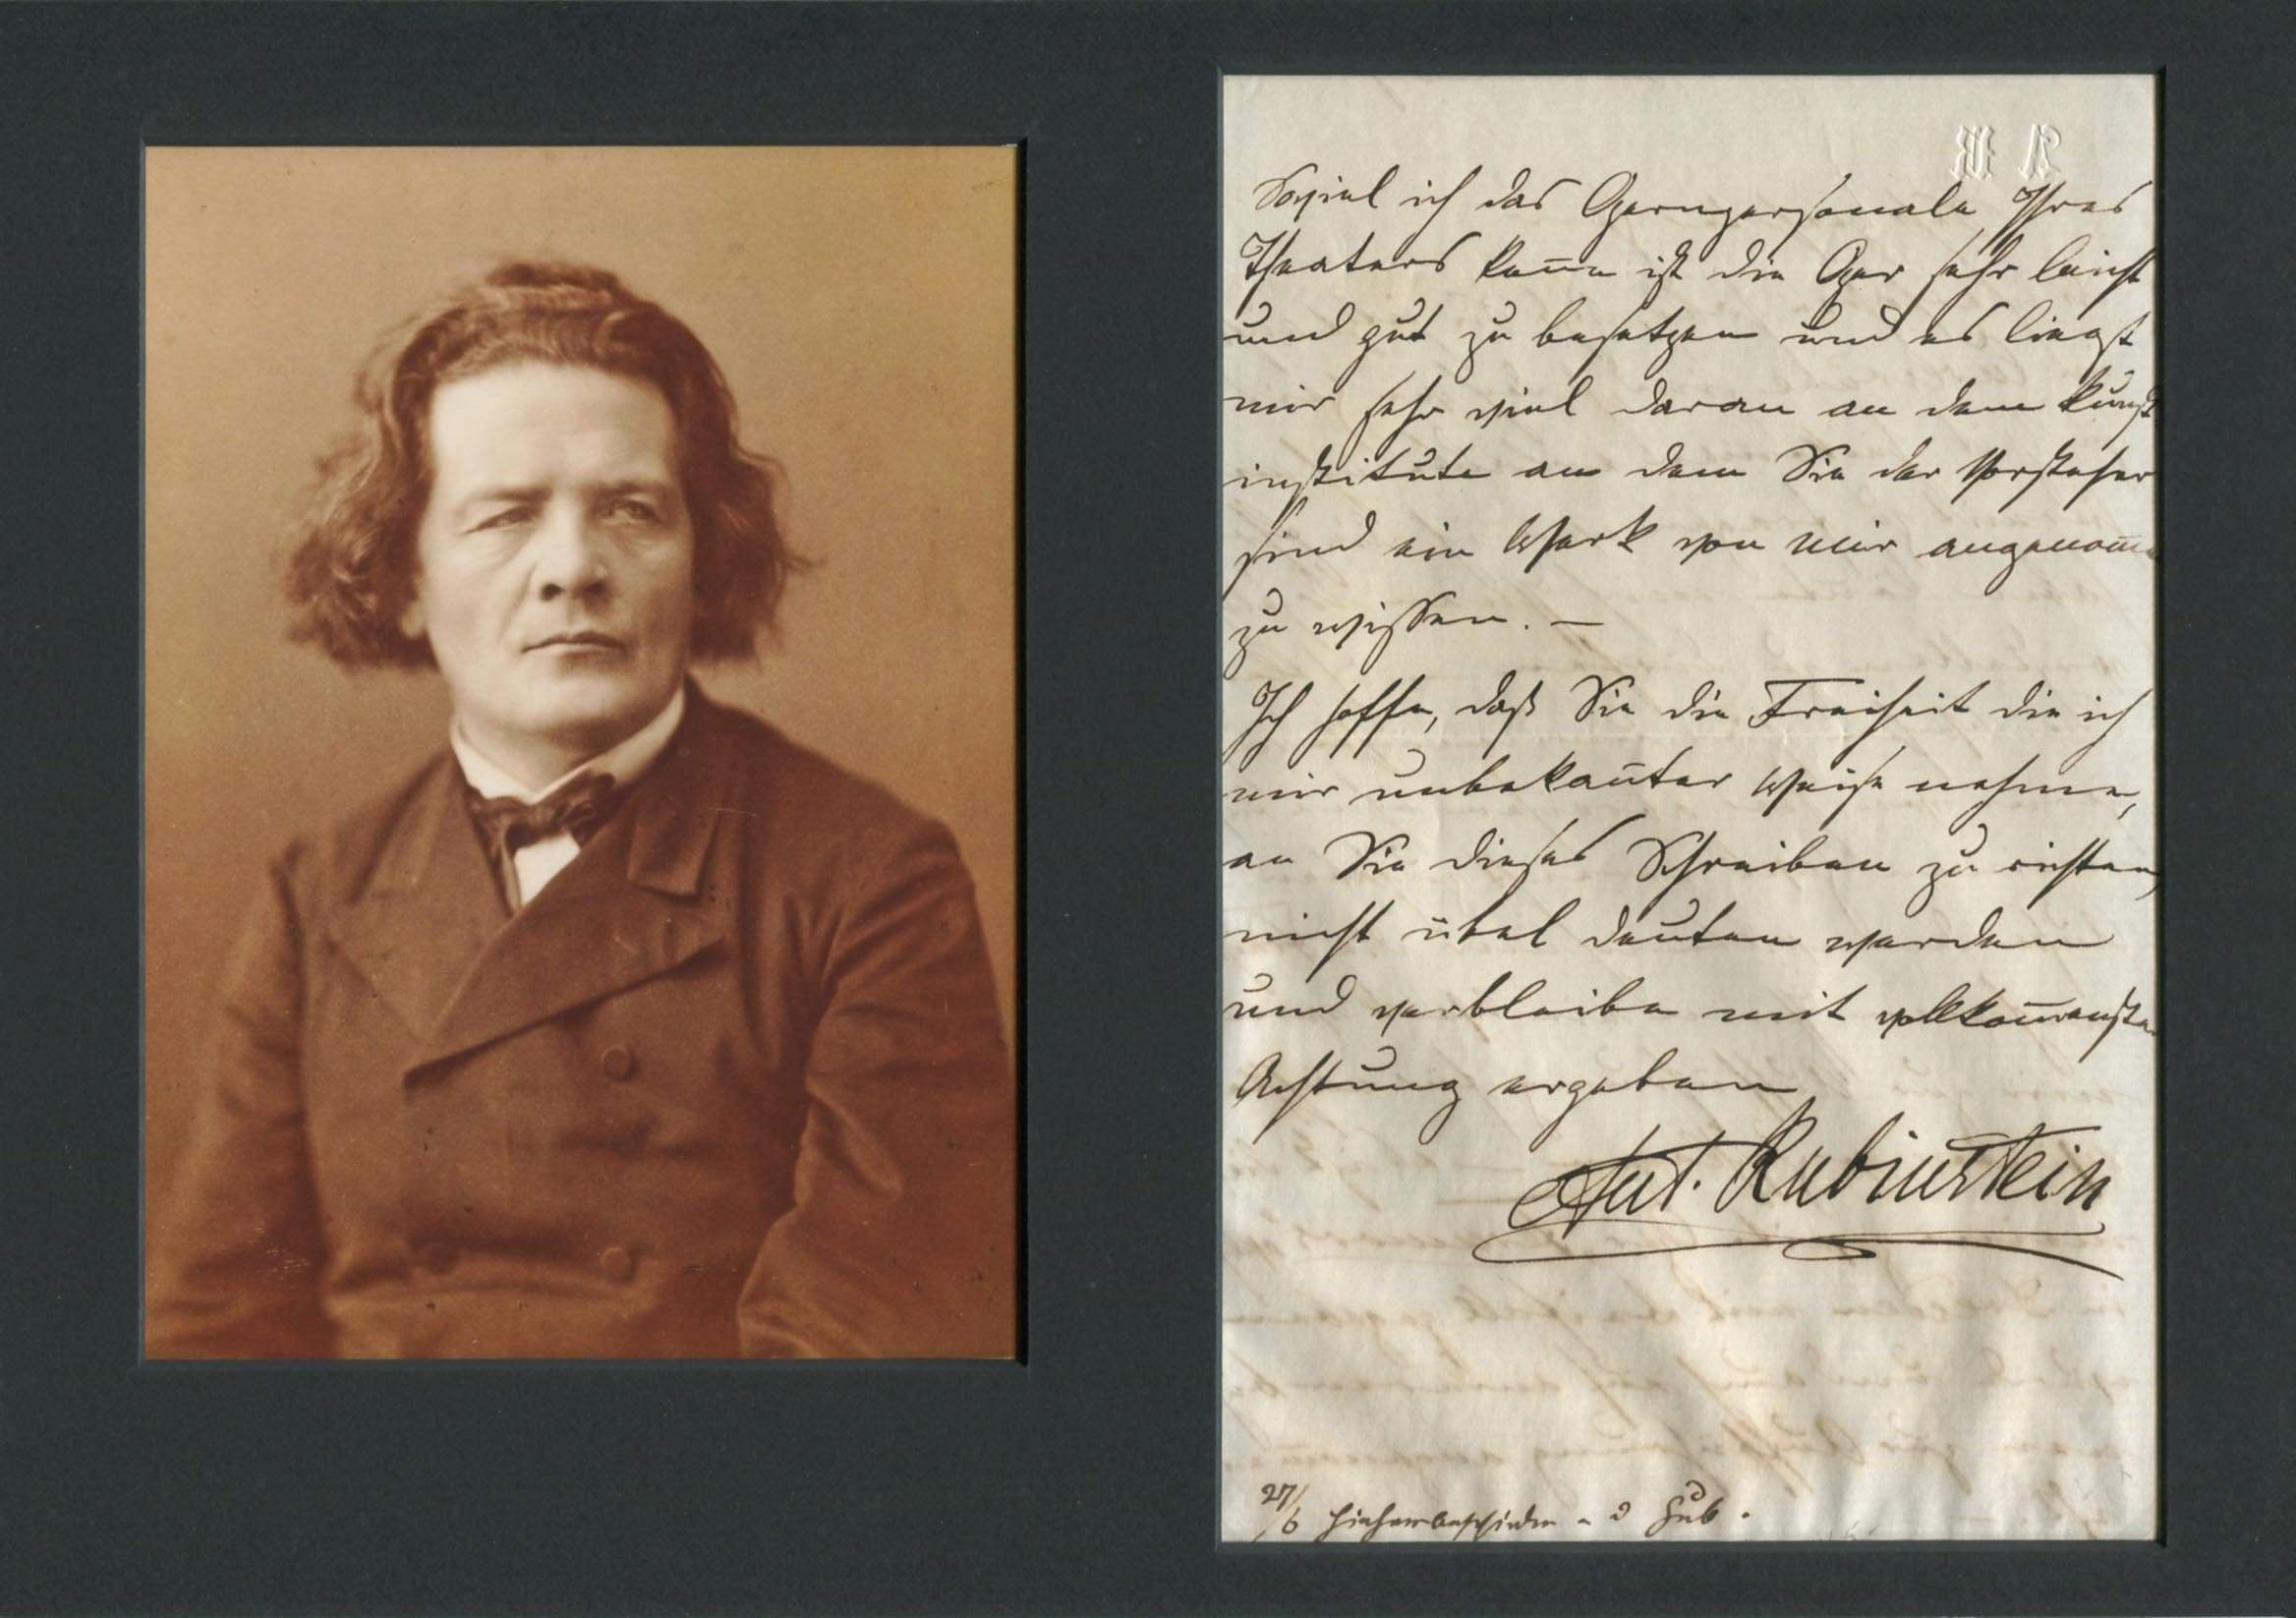 A R
Soviel ich das Opernpersonale Ihres
Theaters kenne ist die Oper sehr leicht
und gut zu besetzen und es liegt
mir sehr viel daran an dem Kunst
institute an dem Sie der Vorsteher
sind ein Werk von mir angenom̅en
zu wissen. —
Ich hoffe, daß Sie die Freiheit die ich
mir unbekan̅ter Weise nehme,
an Sie dieses Schreiben zu richten,
nicht übel deuten werden
und verbleibe mit vollkom̅enster
Achtung ergeben
Ant. Rubinstein
27/6